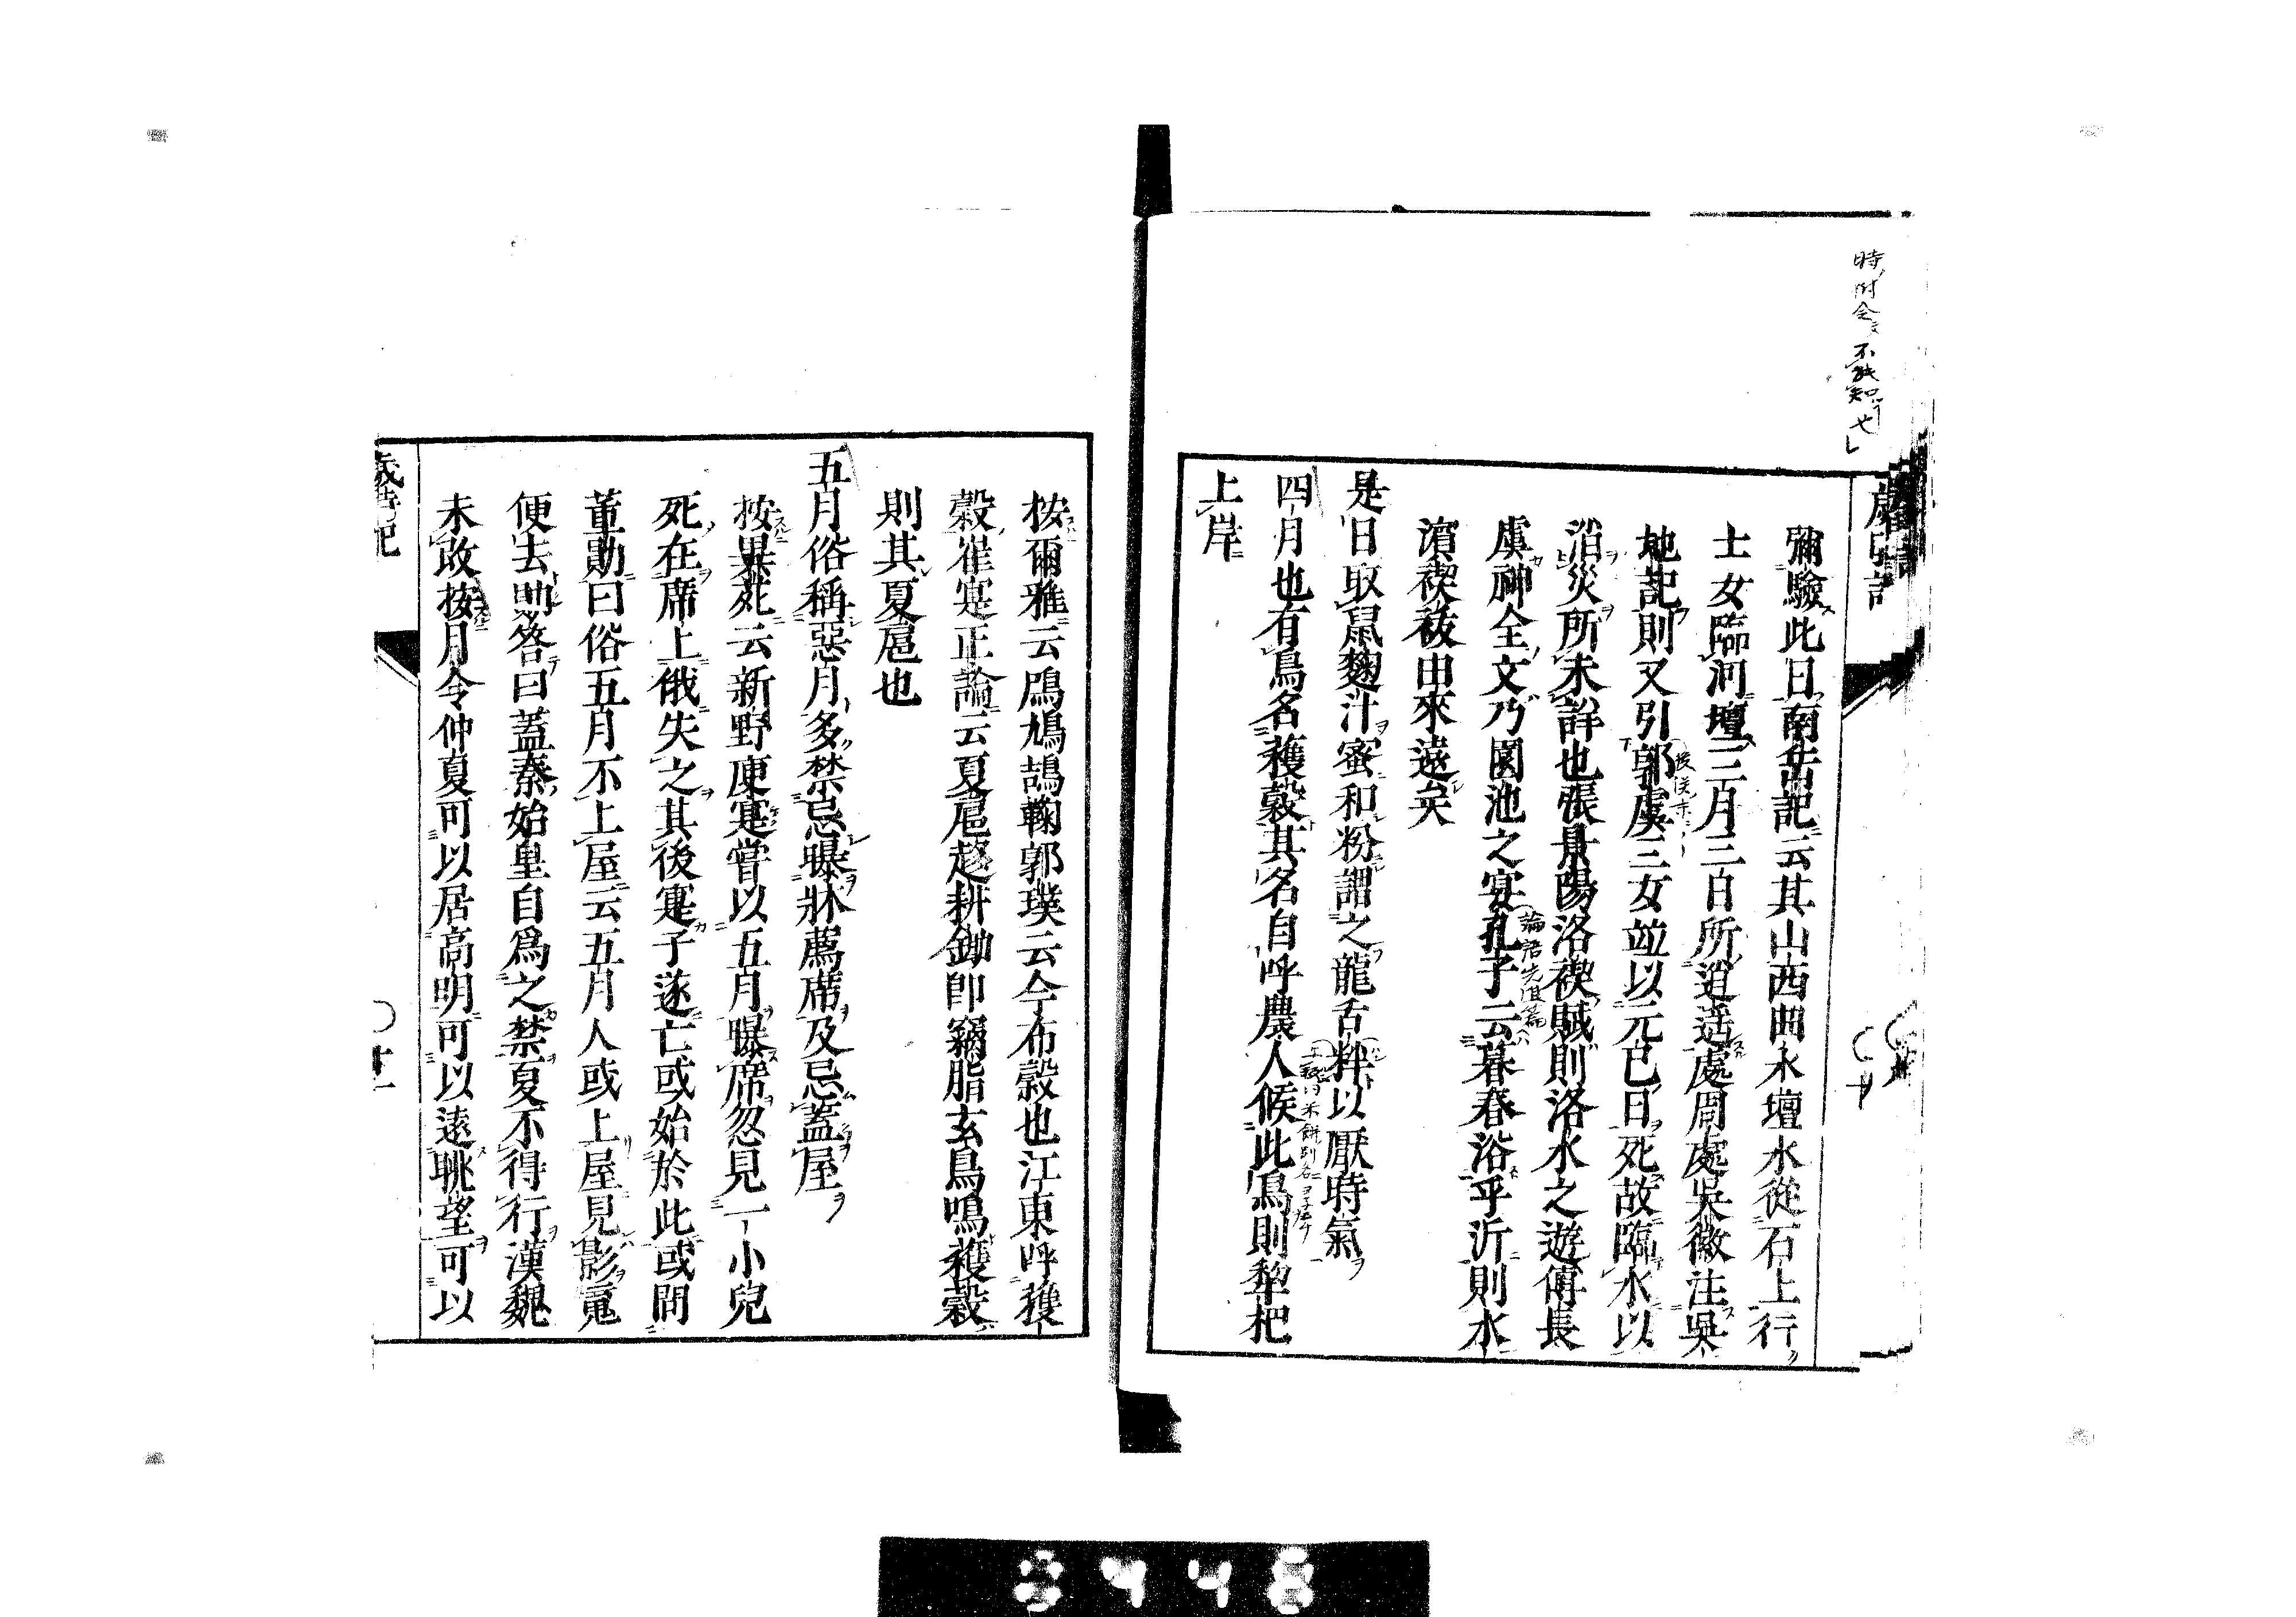 歳時記
彌驗此日南岳記云其山西曲水壇水從石上行
士女臨河壇三月三日所逍遥處周處吳徽注吳
地記則又引郭虞三女竝以元巳日死故臨水以
消災所未詳也張景陽洛禊賦則洛水之遊傅長
虞神全文乃園池之宴孔子云暮春浴乎沂則水
濵禊祓由來遠矣
是日取鼠麴汁蜜和粉謂之龍舌䉽以厭時氣
四月也有鳥名穫穀其名自呼農人候此鳥則犂杷
上岸
按爾雅云鳲鳩鴶鞠郭璞云今布穀也江東呼穫
穀崔寔正論云夏扈趍耕鋤卽竊脂玄鳥鳴穫穀
則其夏扈也
五月俗稱惡月多禁忌曝牀薦席及忌蓋屋
按異苑云新野庾寔嘗以五月曝席忽見一小兒
死在席上俄失之其後寔子遂亡或始於此或問
董勛曰俗五月不上屋云五月人或上屋見影䰟
便去勛答曰蓋秦始皇自爲之禁夏不得行漢魏
未改按月令仲夏可以居高明可以遠眺望可以
歳時記
3448